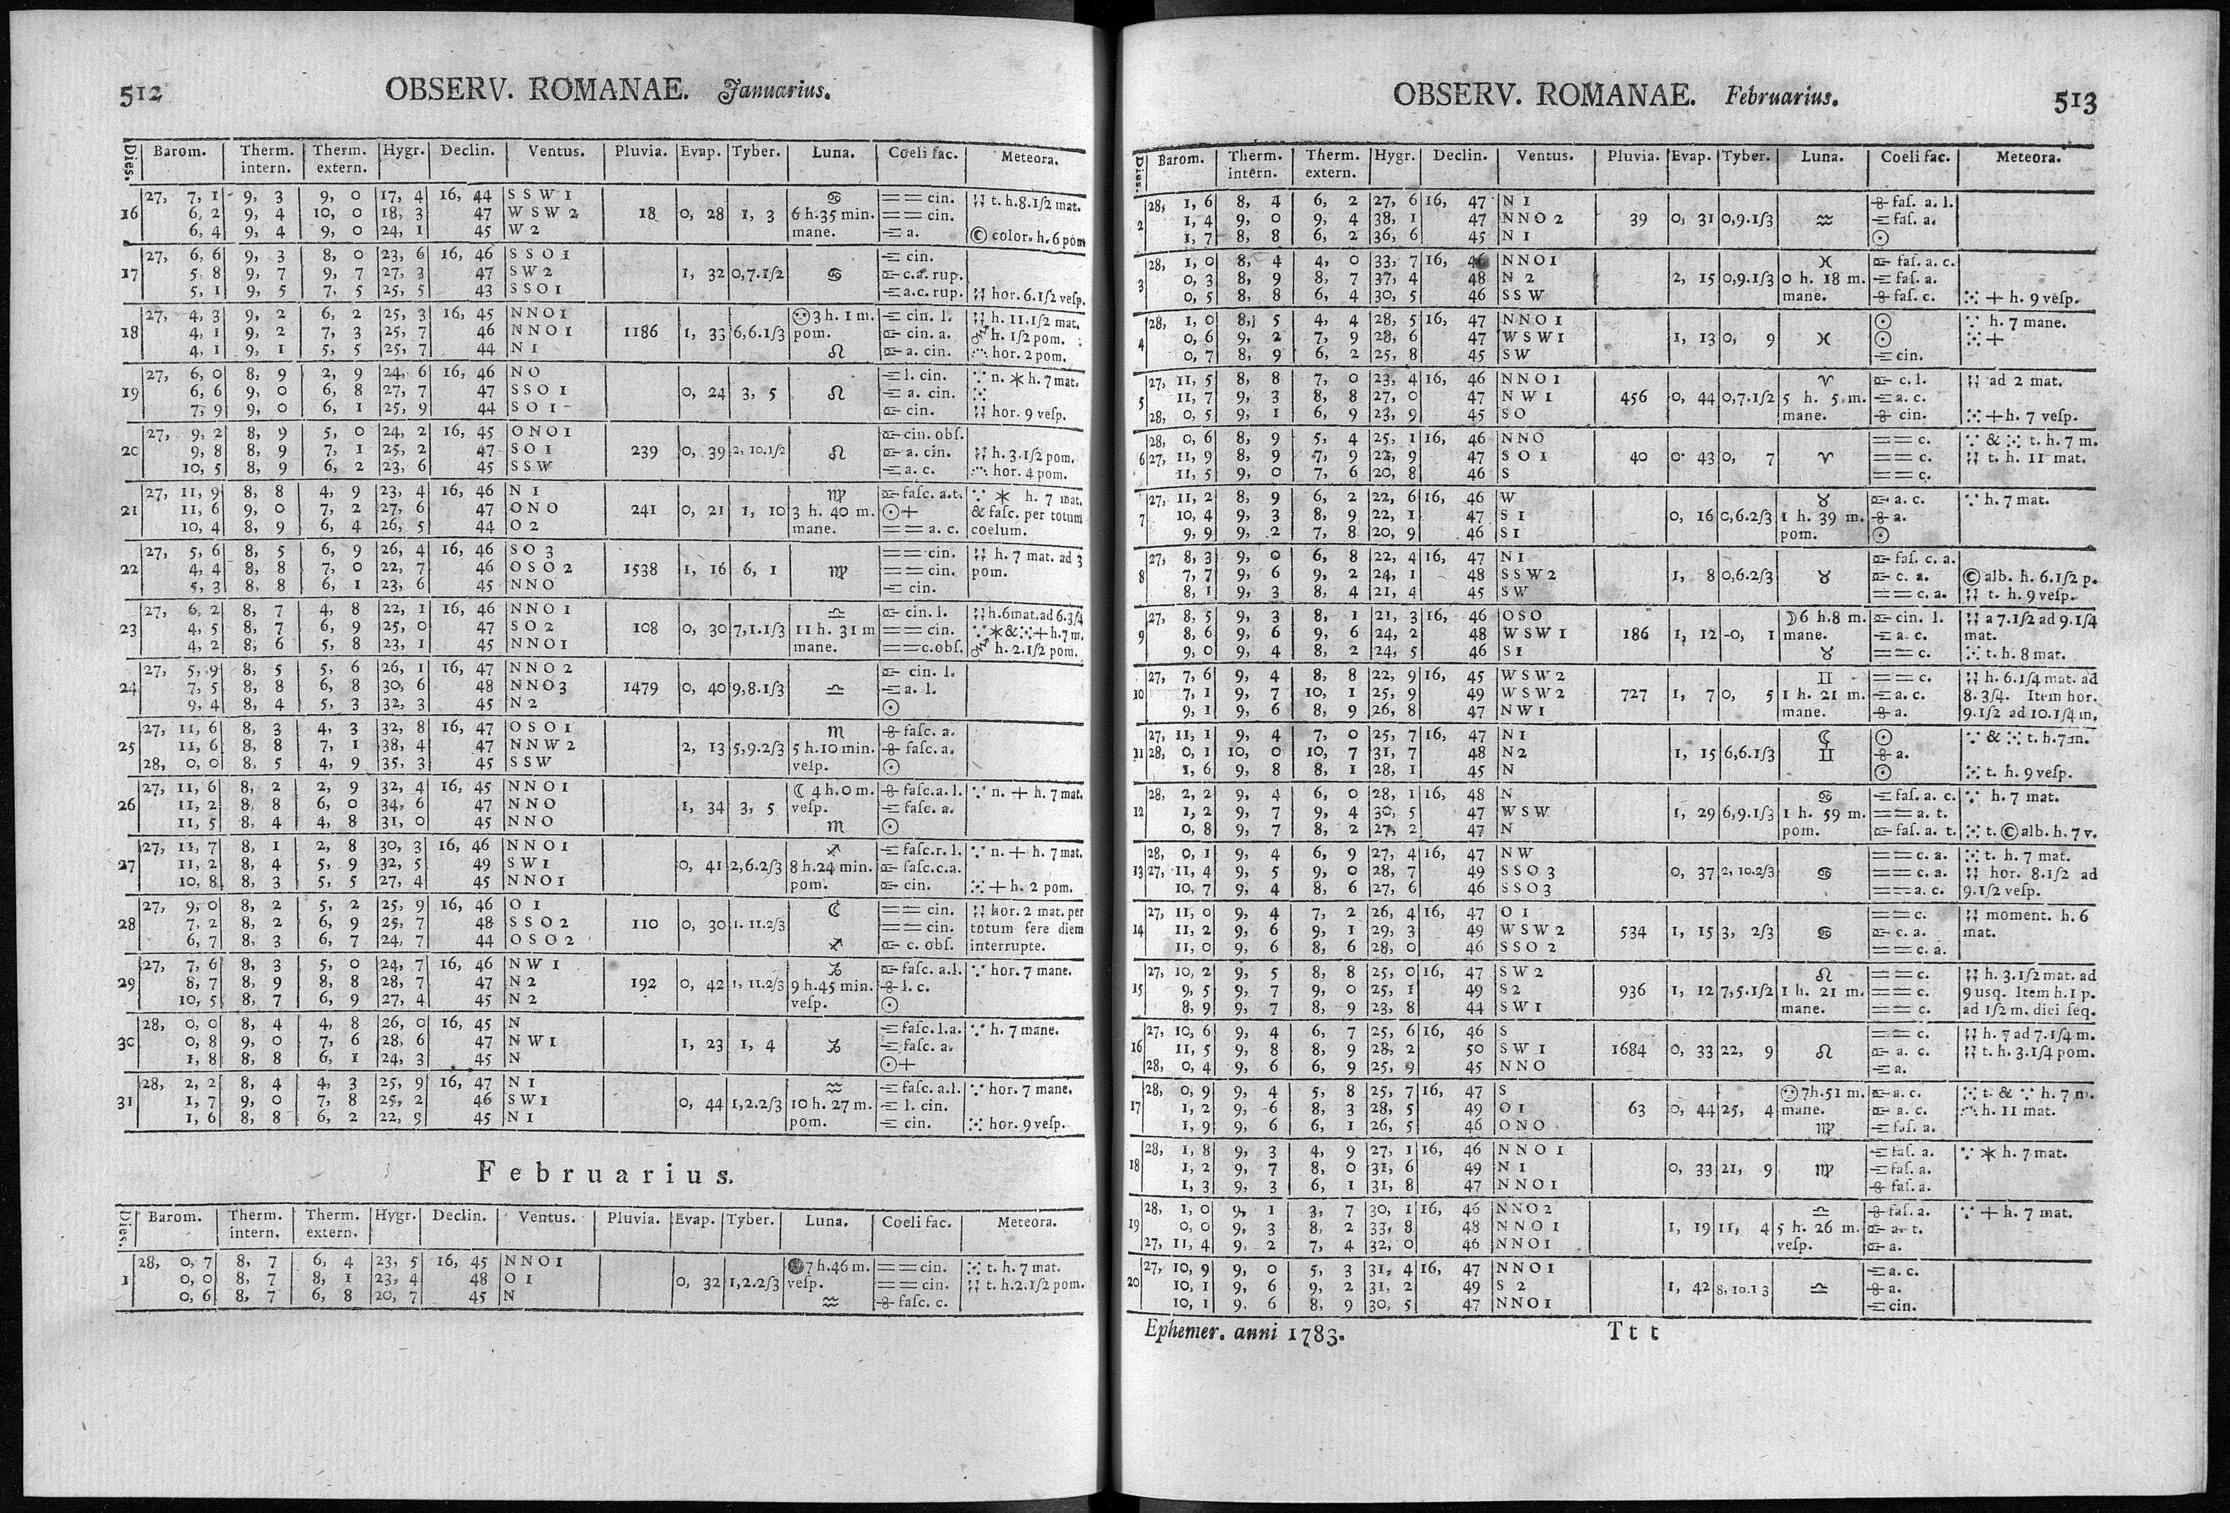 512 OBSERV. ROMANAE. Januarius.
Dies. Barom. Therm. intern. Therm. extern. Hygr. Declin. Ventus. Pluvia. Evap. Tyber. Luna. Coeli fac. Meteora.
27, 7, 1 9, 3 9, 0 17, 4 16, 44 S S W 1 ♋ == cin. t. h. 8. 1/2 mat.
16 6, 2 9, 4 10, 0 18, 3 47 W S W 2 18 0, 28 1, 3 6 h. 35 min. == cin.
6, 4 9, 4 9, 0 24, 1 45 W 2 mane. a. © color. h. 6 pom
27, 6, 6 9, 3 8, 0 23, 6 16, 46 S S O 1 cin.
17 5, 8 9, 7 9, 7 27, 3 47 S W 2 1, 32 0,7.1/2 ♋ c.a. rup.
5, 1 9, 5 7, 5 25, 5 43 S S O 1 a.c. rup. hor. 6. 1/2 veſp.
27, 4, 3 9, 2 6, 2 25, 3 16, 45 N N O 1 3 h. 1 m. cin. l. h. 11. 1/2 mat.
18 4, 1 9, 2 7, 3 25, 7 46 N N O 1 1186 1, 33 6,6.1/3 pom. cin. a. h. 1/2 pom.
4, 1 9, 1 5, 5 25, 7 44 N 1 ♌ a. cin. hor. 2 pom.
27, 6, 0 8, 9 2, 9 24, 6 16, 46 N O l. cin. n. * h. 7 mat.
19 6, 6 9, 0 6, 8 27, 7 47 S S O 1 0, 24 3, 5 ♌ a. cin.
7, 9 9, 0 6, 1 25, 9 44 S O 1 cin. hor. 9 veſp.
27, 9, 2 8, 9 5, 0 24, 2 16, 45 O N O 1 cin. obſ.
20 9, 8 8, 9 7, 1 25, 2 47 S O 1 239 0, 39 2, 10.1/2 ♌ a. cin. h. 3. 1/2 pom.
10, 5 8, 9 6, 2 23, 6 45 S S W a. c. hor. 4 pom.
27, 11, 9 8, 8 4, 9 23, 4 16, 46 N 1 ♍ faſc. a.t. * h. 7 mat.
21 11, 6 9, 0 7, 2 27, 6 47 O N O 241 0, 21 1, 10 3 h. 40 m. ☉+ & faſc. per totum
10, 4 8, 9 6, 4 26, 5 44 O 2 mane. == a. c. coelum.
27, 5, 6 8, 5 6, 9 26, 4 16, 46 S O 3 == cin. h. 7 mat. ad 3
22 4, 4 8, 8 7, 0 22, 7 46 O S O 2 1538 1, 16 6, 1 ♍ == cin. pom.
5, 3 8, 8 6, 1 23, 6 45 N N O cin.
27, 6, 2 8, 7 4, 8 22, 1 16, 46 N N O 1 ♎ cin. l. h. 6 mat. ad 6. 3/4
23 4, 5 8, 7 6, 9 25, 0 47 S O 2 108 0, 30 7,1.1/3 11 h. 31 m == cin. * & + h. 7 m.
4, 2 8, 6 5, 8 23, 1 45 N N O 1 mane. == c. obſ. h. 2. 1/2 pom.
27, 5, 9 8, 5 5, 6 26, 1 16, 47 N N O 2 cin. l.
24 7, 5 8, 8 6, 8 30, 6 48 N N O 3 1479 0, 40 9,8.1/3 ♎ a. l.
9, 4 8, 4 5, 3 32, 3 45 N 2 ☉
27, 11, 6 8, 3 4, 3 32, 8 16, 47 O S O 1 ♏ faſc. a.
25 11, 6 8, 8 7, 1 38, 4 47 N N W 2 2, 13 5,9.2/3 5 h. 10 min. faſc. a.
28, 0, 0 8, 5 4, 9 35, 3 45 S S W veſp. ☉
27, 11, 6 8, 2 2, 9 32, 4 16, 45 N N O 1 ☾ 4 h. 0 m. faſc. a. l. n. + h. 7 mat.
26 11, 2 8, 8 6, 0 34, 6 47 N N O 1, 34 3, 5 veſp. faſc. a.
11, 5 8, 4 4, 8 31, 0 45 N N O ♏ ☉
27, 11, 7 8, 1 2, 8 30, 3 16, 46 N N O 1 ♐ faſc. r. l. n. + h. 7 mat.
27 11, 2 8, 4 5, 9 32, 5 49 S W 1 0, 41 2,6.2/3 8 h. 24 min. faſc. c. a.
10, 8 8, 3 5, 5 27, 4 45 N N O 1 pom. cin. + h. 2 pom.
27, 9, 0 8, 2 5, 2 25, 9 16, 46 O 1 ☾ == cin. hor. 2 mat. per
28 7, 2 8, 2 6, 9 25, 7 48 S S O 2 110 0, 30 1. 11.2/3 == cin. totum fere diem
6, 7 8, 3 6, 7 24, 7 44 O S O 2 ♐ c. obſ. interrupte.
27, 7, 6 8, 3 5, 0 24, 7 16, 46 N W 1 ♑ faſc. a. l. hor. 7 mane.
29 8, 7 8, 9 8, 8 28, 7 47 N 2 192 0, 42 1, 11.2/3 9 h. 45 min. l. c.
10, 5 8, 7 6, 9 27, 4 45 N 2 veſp. ☉
28, 0, 0 8, 4 4, 8 26, 0 16, 45 N faſc. l. a. h. 7 mane.
30 0, 8 9, 0 7, 6 28, 6 47 N W 1 1, 23 1, 4 ♑ faſc. a.
1, 8 8, 8 6, 1 24, 3 45 N ☉+
28, 2, 2 8, 4 4, 3 25, 9 16, 47 N 1 ♒ faſc. a. l. hor. 7 mane.
31 1, 7 9, 0 7, 8 25, 2 46 S W 1 0, 44 1,2.2/3 10 h. 27 m. l. cin.
1, 6 8, 8 6, 2 22, 9 45 N 1 pom. cin. hor. 9 veſp.
Februarius.
Dies. Barom. Therm. intern. Therm. extern. Hygr. Declin. Ventus. Pluvia. Evap. Tyber. Luna. Coeli fac. Meteora.
28, 0, 7 8, 7 6, 4 23, 5 16, 45 N N O 1 7 h. 46 m. == cin. t. h. 7 mat.
1 0, 0 8, 7 8, 1 23, 4 48 O 1 0, 32 1,2.2/3 veſp. == cin. t. h. 2. 1/2 pom.
0, 6 8, 7 6, 8 20, 7 45 N ♒ faſc. c.
OBSERV. ROMANAE. Februarius. 513
Dies. Barom. Therm. intern. Therm. extern. Hygr. Declin. Ventus. Pluvia. Evap. Tyber. Luna. Coeli fac. Meteora.
28, 1, 6 8, 4 6, 2 27, 6 16, 47 N 1 faſ. a. l.
2 1, 4 9, 0 9, 4 38, 1 47 N N O 2 39 0, 31 0,9.1/3 ♒ faſ. a.
1, 7 8, 8 6, 2 36, 6 45 N 1 ☉
28, 1, 0 8, 4 4, 0 33, 7 16, 46 N N O 1 ♓ faſ. a. c.
3 0, 3 8, 9 8, 7 37, 4 48 N 2 2, 15 0,9.1/3 0 h. 18 m. faſ. a.
0, 5 8, 8 6, 4 30, 5 46 S S W mane. faſ. c. + h. 9 veſp.
28, 1, 0 8, 5 4, 4 28, 5 16, 47 N N O 1 ☉ h. 7 mane.
4 0, 6 9, 2 7, 9 28, 6 47 W S W 1 1, 13 0, 9 ♓ ☉ +
0, 7 8, 9 6, 2 25, 8 45 S W cin.
27, 11, 5 8, 8 7, 0 23, 4 16, 46 N N O 1 ♈ c. l. ad 2 mat.
5 11, 7 9, 3 8, 8 27, 0 47 N W 1 456 0, 44 0,7.1/2 5 h. 5 m. a. c.
28, 0, 5 9, 1 6, 9 23, 9 45 S O mane. cin. + h. 7 veſp.
28, 0, 6 8, 9 5, 4 25, 1 16, 46 N N O == c. & t. h. 7 m.
6 27, 11, 9 8, 9 7, 9 22, 9 47 S O 1 40 0, 43 0, 7 ♈ == c. t. h. 11 mat.
11, 5 9, 0 7, 6 20, 8 46 S == c.
27, 11, 2 8, 9 6, 2 22, 6 16, 46 W ♉ a. c. h. 7 mat.
7 10, 4 9, 3 8, 9 22, 1 47 S 1 0, 16 0,6.2/3 1 h. 39 m. a.
9, 9 9, 2 7, 8 20, 9 46 S 1 pom. ☉
27, 8, 3 9, 0 6, 8 22, 4 16, 47 N 1 faſ. c. a.
8 7, 7 9, 6 9, 2 24, 1 48 S S W 2 1, 8 0,6.2/3 ♉ c. a. © alb. h. 6. 1/2 p.
8, 1 9, 3 8, 4 21, 4 45 S W == c. a. t. h. 9 veſp.
27, 8, 5 9, 3 8, 1 21, 3 16, 46 O S O ☽ 6 h. 8 m. cin. l. a 7. 1/2 ad 9. 1/4
9 8, 6 9, 6 9, 6 24, 2 48 W S W 1 186 1, 12 -0, 1 mane. a. c. mat.
9, 0 9, 4 8, 2 24, 5 46 S 1 ♉ == c. t. h. 8 mat.
27, 7, 6 9, 4 8, 8 22, 9 16, 45 W S W 2 ♊ == c. h. 6. 1/4 mat. ad
10 7, 1 9, 7 10, 1 25, 9 49 W S W 2 727 1, 7 0, 5 1 h. 21 m. a. c. 8. 3/4. Item hor.
9, 1 9, 6 8, 9 26, 8 47 N W 1 mane. a. 9. 1/2 ad 10. 1/4 m.
27, 11, 1 9, 4 7, 0 25, 7 16, 47 N 1 ☾ ☉ & t. h. 7 m.
11 28, 0, 1 10, 0 10, 7 31, 7 48 N 2 1, 15 6,6.1/3 ♊ a.
1, 6 9, 8 8, 1 28, 1 45 N ☉ t. h. 9 veſp.
28, 2, 2 9, 4 6, 0 28, 1 16, 48 N ♋ faſ. a. c. h. 7 mat.
12 1, 2 9, 7 9, 4 30, 5 47 W S W 1, 29 6,9.1/3 1 h. 59 m. == a. t.
0, 8 9, 7 8, 2 27, 2 47 N pom. faſ. a. t. t. © alb. h. 7 v.
28, 0, 1 9, 4 6, 9 27, 4 16, 47 N W == c. a. t. h. 7 mat.
13 27, 11, 4 9, 5 9, 0 28, 7 49 S S O 3 0, 37 2, 10.2/3 ♋ == c. a. hor. 8. 1/2 ad
10, 7 9, 4 8, 6 27, 6 46 S S O 3 == a. c. 9. 1/2 veſp.
27, 11, 0 9, 4 7, 2 26, 4 16, 47 O 1 == c. moment. h. 6
14 11, 2 9, 6 9, 1 29, 3 49 W S W 2 534 1, 15 3, 2/3 ♋ c. a. mat.
11, 0 9, 6 8, 6 28, 0 46 S S O 2 == c. a.
27, 10, 2 9, 5 8, 8 25, 0 16, 47 S W 2 ♌ == c. h. 3. 1/2 mat. ad
15 9, 5 9, 7 9, 0 25, 1 49 S 2 936 1, 12 7,5.1/2 1 h. 21 m. == c. 9 usq. Item h. 1 p.
8, 9 9, 7 8, 9 23, 8 44 S W 1 mane. == c. ad 1/2 m. diei ſeq.
27, 10, 6 9, 4 6, 7 25, 6 16, 46 S == c. h. 7 ad 7. 1/4 m.
16 11, 5 9, 8 8, 9 28, 2 50 S W 1 1684 0, 33 22, 9 ♌ a. c. t. h. 3. 1/4 pom.
28, 0, 4 9, 6 6, 9 25, 9 45 N N O a.
28, 0, 9 9, 4 5, 8 25, 7 16, 47 S 7 h. 51 m. a. c. t. & h. 7 m.
17 1, 2 9, 6 8, 3 28, 5 49 O 1 63 0, 44 25, 4 mane. a. c. h. 11 mat.
1, 9 9, 6 6, 1 26, 5 46 O N O ♍ faſ. a.
28, 1, 8 9, 3 4, 9 27, 1 16, 46 N N O 1 faſ. a. * h. 7 mat.
18 1, 2 9, 7 8, 0 31, 6 49 N 1 0, 33 21, 9 ♍ faſ. a.
1, 3 9, 3 6, 1 31, 8 47 N N O 1 faſ. a.
28, 1, 0 9, 1 3, 7 30, 1 16, 46 N N O 2 ♎ faſ. a. + h. 7 mat.
19 0, 0 9, 3 8, 2 33, 8 48 N N O 1 1, 19 11, 4 5 h. 26 m. a. t.
27, 11, 4 9, 2 7, 4 32, 0 46 N N O 1 veſp. a.
27, 10, 9 9, 0 5, 3 31, 4 16, 47 N N O 1 a. c.
20 10, 1 9, 6 9, 2 31, 2 49 S 2 1, 42 8, 10.1 3 ♎ a.
10, 1 9, 6 8, 9 30, 5 47 N N O 1 cin.
Ephemer. anni 1783. T t t